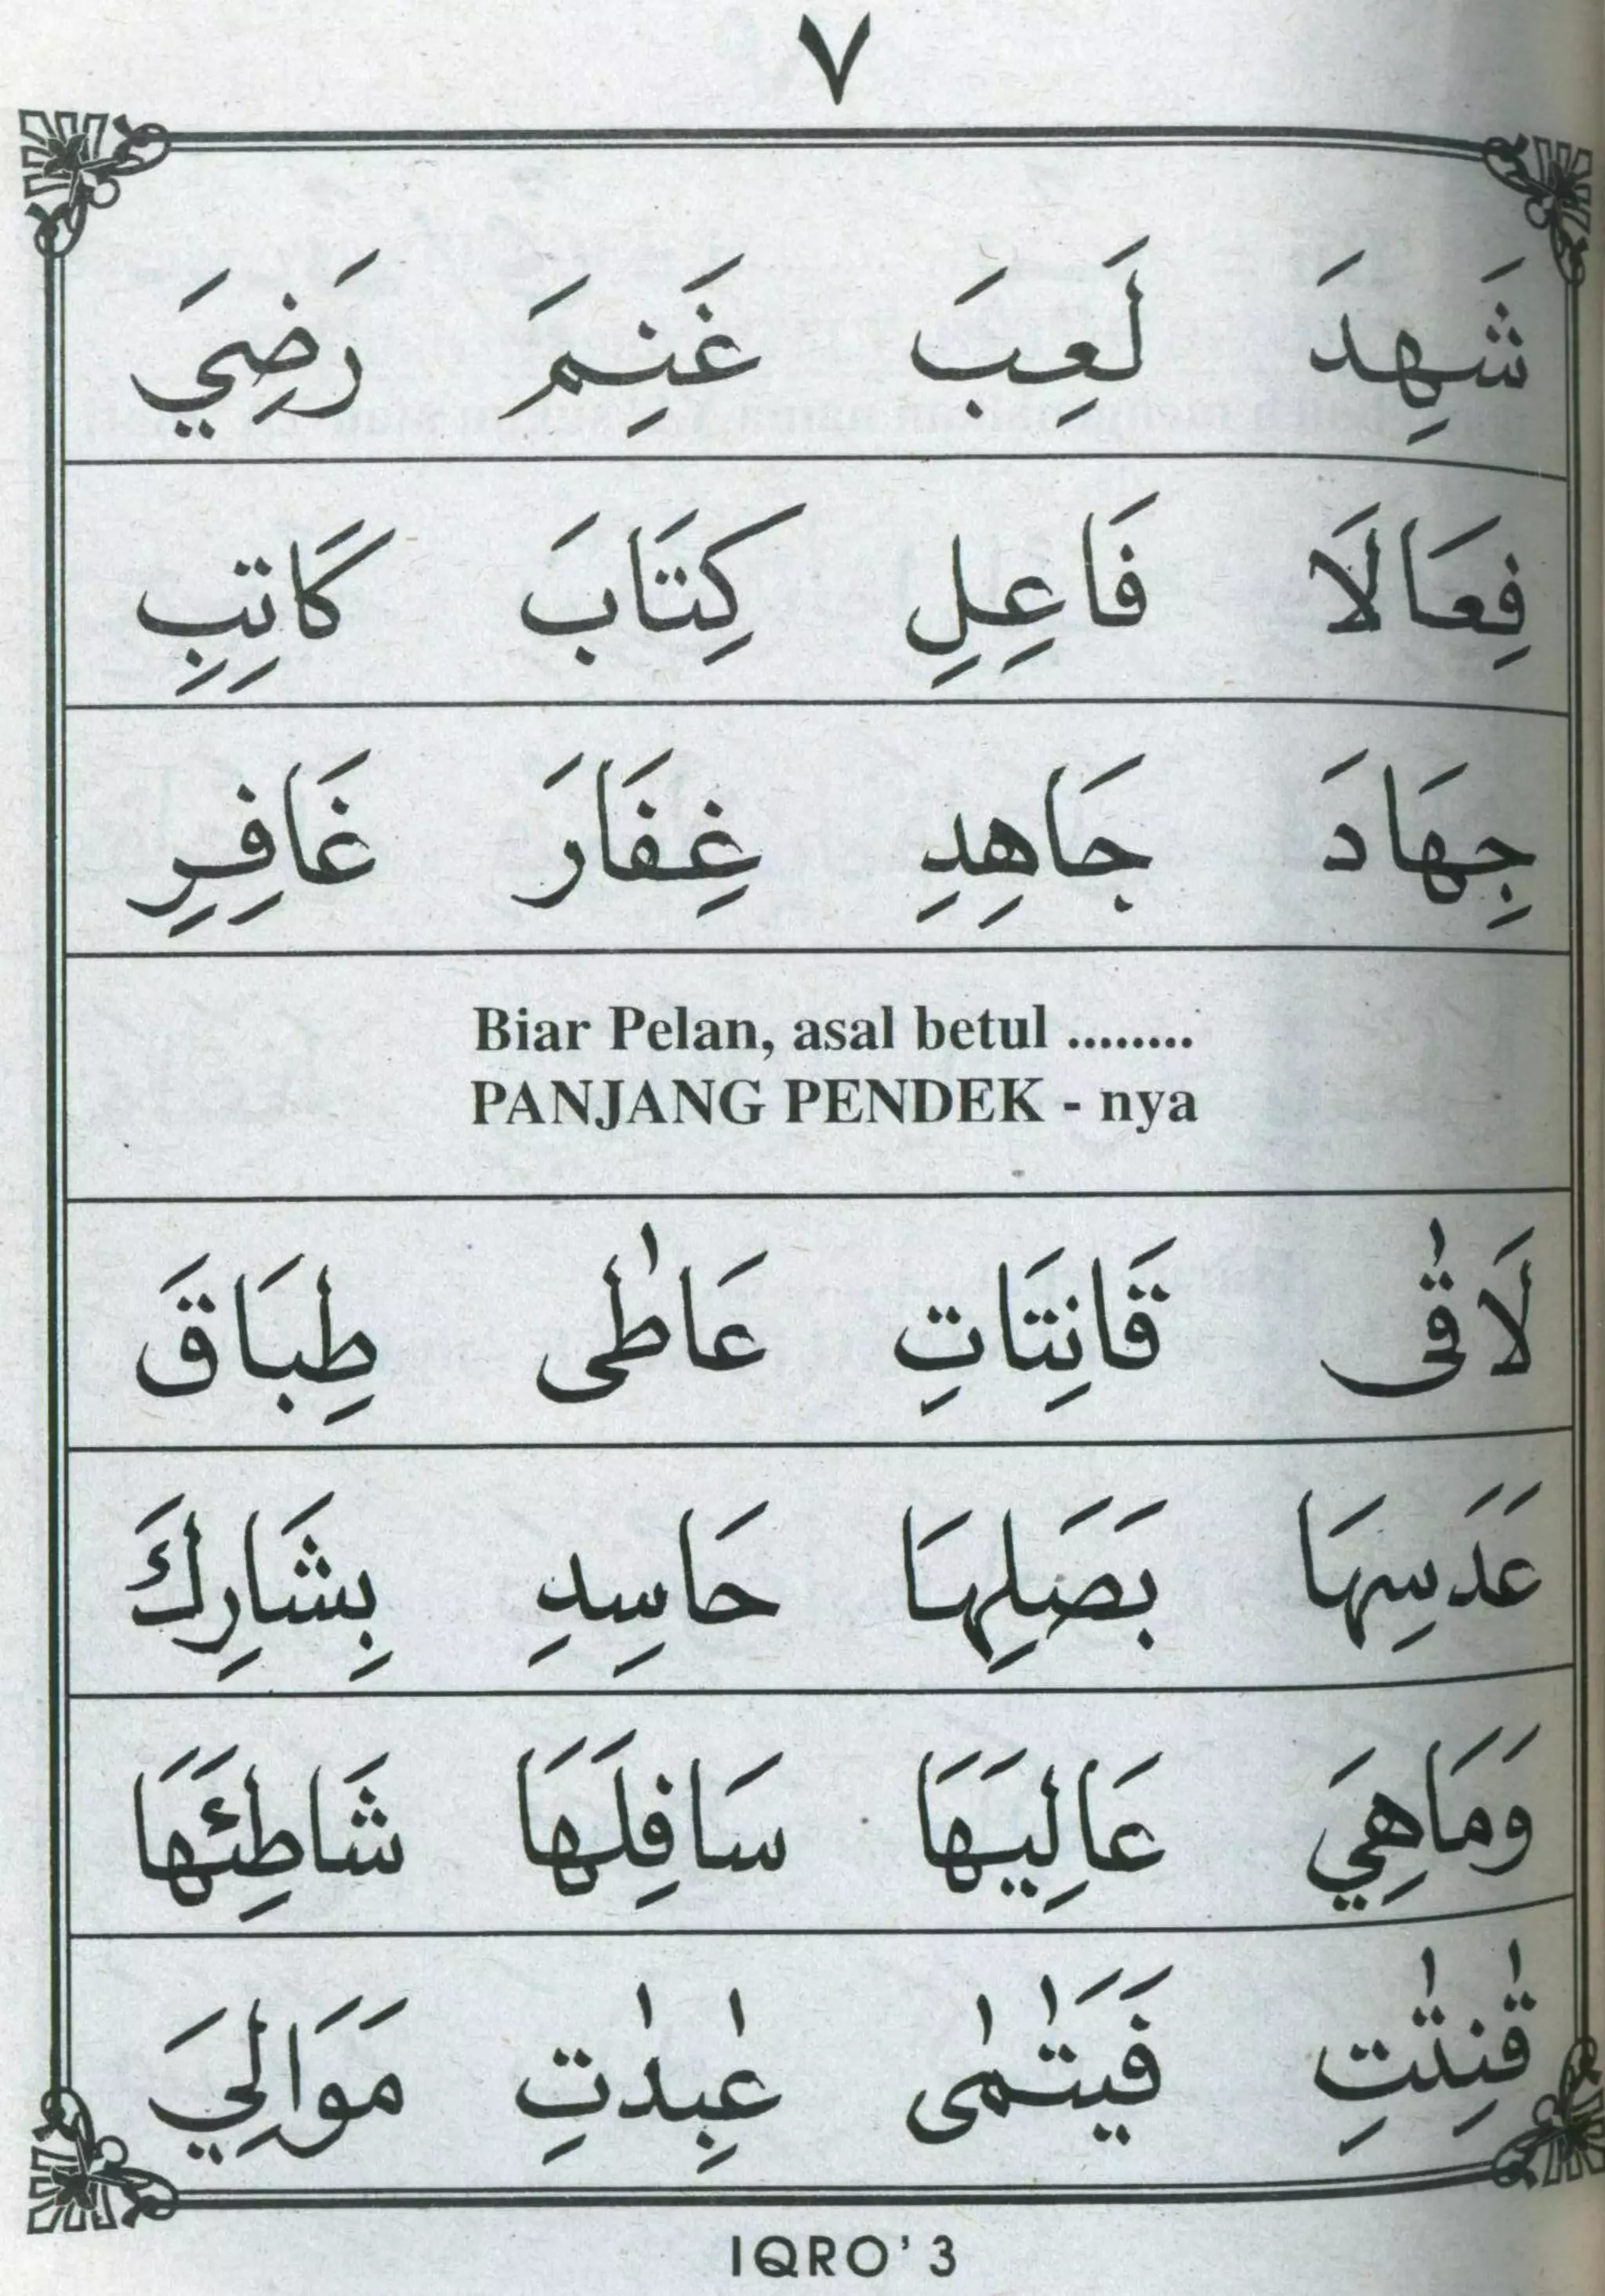 ٧
شَهِدَ لَعِبَ غَنِمَ رَضِيَ
فِعَالَا فَاعِلِ كِتَابَ كَاتِبِ
جِهَادَ جَاهِدِ غِفَارَ غَافِرِ
Biar Pelan, asal betul ........
PANJANG PENDEK - nya
لَاقٰى قَانِتَاتِ عَاطٰى طِبَاقَ
عَدَسِهَا بَصَلِهَا حَاسِدِ بِشَارِكَ
وَمَاهِيَ عَالِيَهَا سَافِلَهَا شَاطِئَهَا
قٰنِتٰتِ فَيَتٰمٰى عٰبِدٰتِ مَوَالِيَ
IQRO' 3